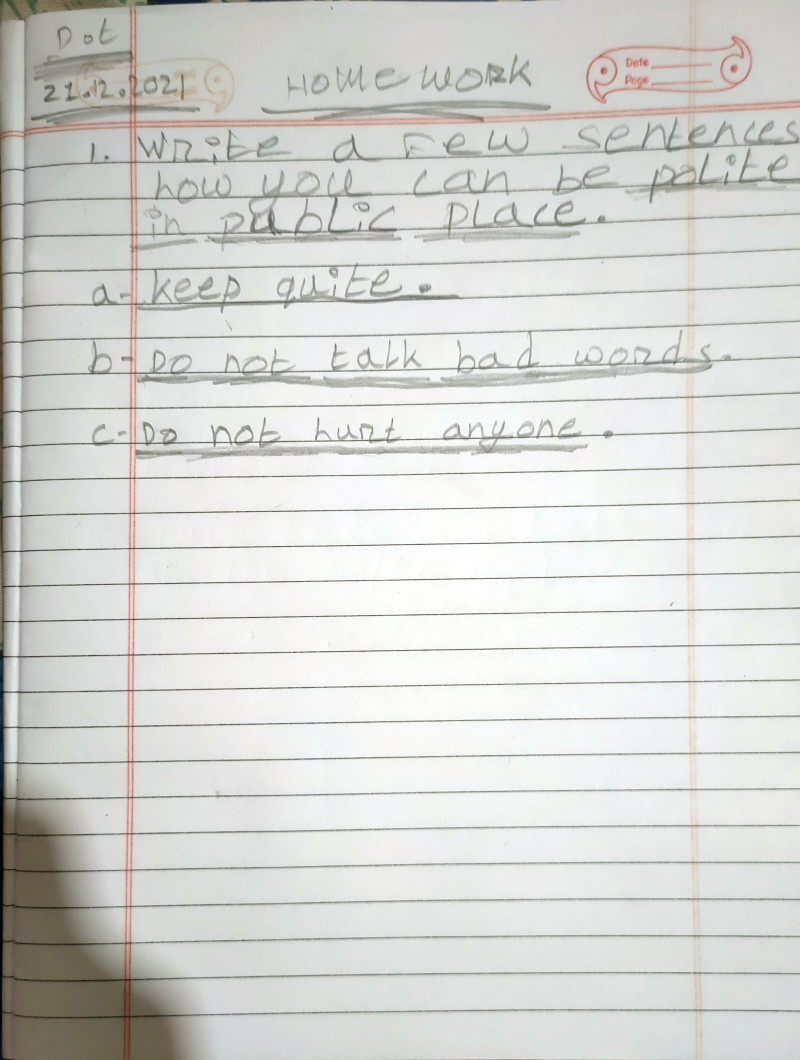 Dot
21.12.2021
Home work
Date
Page
1. Write a few sentences
how you can be polite
in public place.
a- keep quite.
b- Do not talk bad words.
c- Do not hurt anyone.